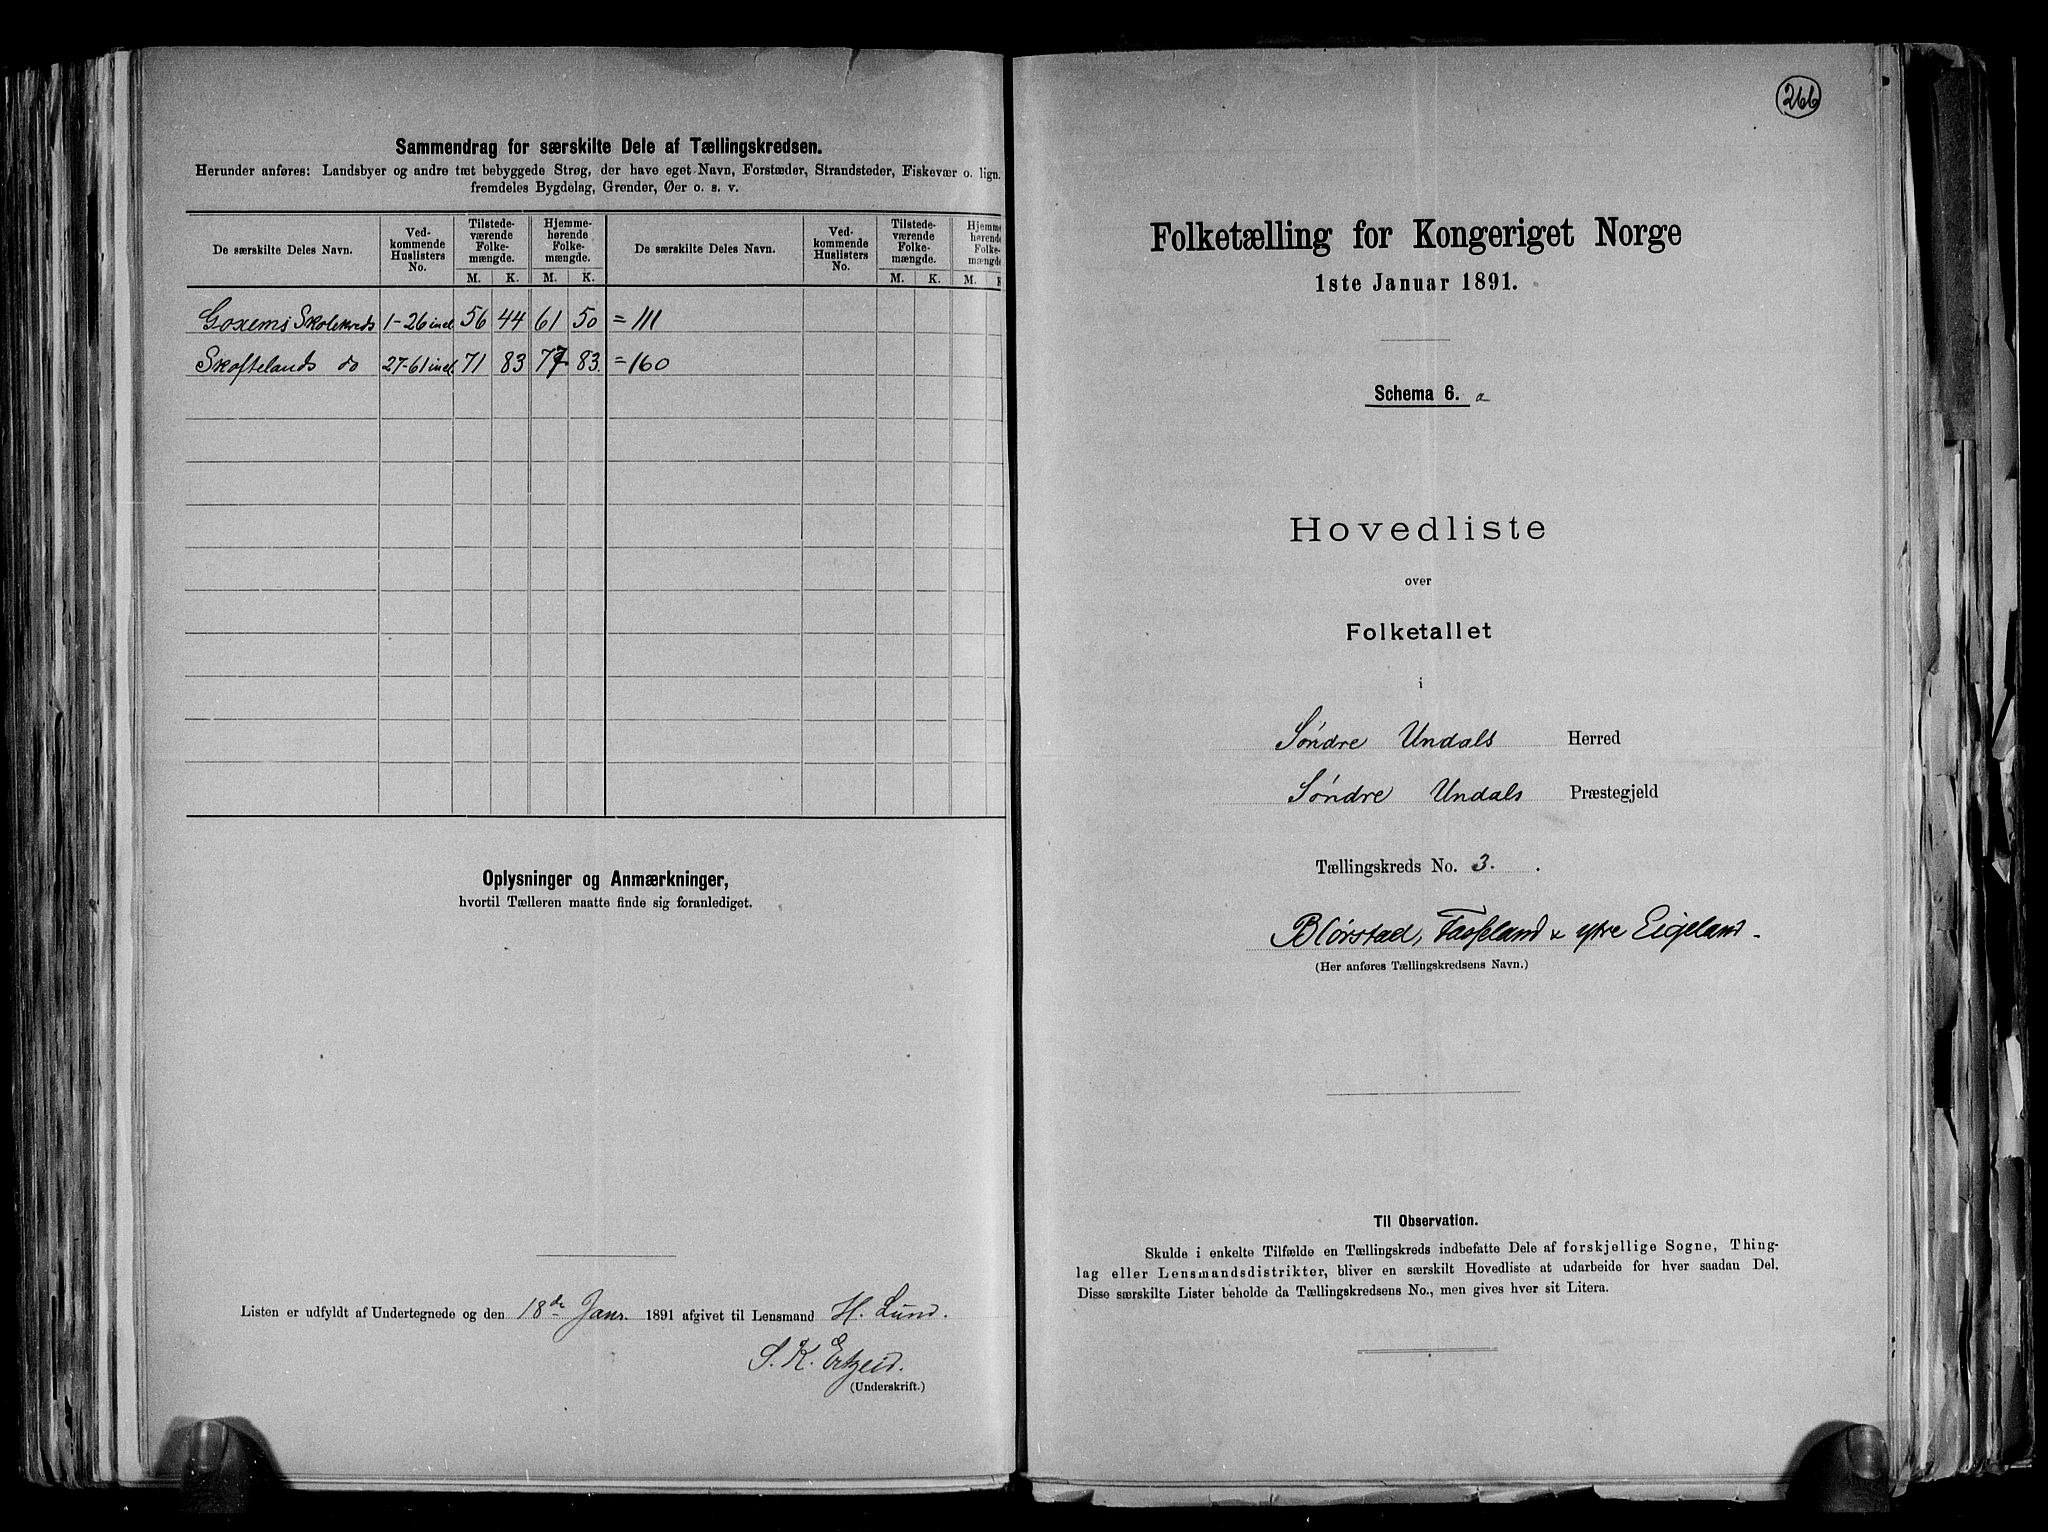 Sammendrag for særskilte Dele af Tællingskredsen.
Herunder anføres: Landsbyer og andre tæt bebyggede Strøg, der have eget Navn, Forstæder, Strandsteder, Fiskevær o. lign.
fremdeles Bygdelag, Grender, Øer o. s. v.
De særskilte Deles Navn. Ved-kommende Huslisters No. Tilstede-værende Folke-mængde. Hjemme-hørende Folke-mængde. De særskilte Deles Navn. Ved-kommende Huslisters No. Tilstede-værende Folke-mængde. Hjemme hørende Folke-mængde
M. K. M. K. M. K. M. K
Goxems Skolekreds 1-26 incl 56 44 61 50 = 111
Skoftelands do 27-61 incl. 71 83 77 83. = 160
Oplysninger og Anmærkninger,
hvortil Tælleren maatte finde sig foranlediget.
Listen er udfyldt af Undertegnede og den 18de Janr. 1891 afgivet til Lensmand H. Lund.
S. K.
(Underskrift.)
266
Folketælling for Kongeriget Norge
1ste Januar 1891.
Schema 6. a
Hovedliste
over
Folketallet
i
Søndre Undals Herred
Søndre Undals Præstegjeld
Tællingskreds No. 3.
Blørstad, & ytre Eigeland.
(Her anføres Tællingskredsens Navn.)
Til Observation.
Skulde i enkelte Tilfælde en Tællingskreds indbefatte Dele af forskjellige Sogne, Thing-
lag eller Lensmandsdistrikter, bliver en særskilt Hovedliste at udarbeide for hver saadan Del.
Disse særskilte Lister beholde da Tællingskredsens No., men gives hver sit Litera.